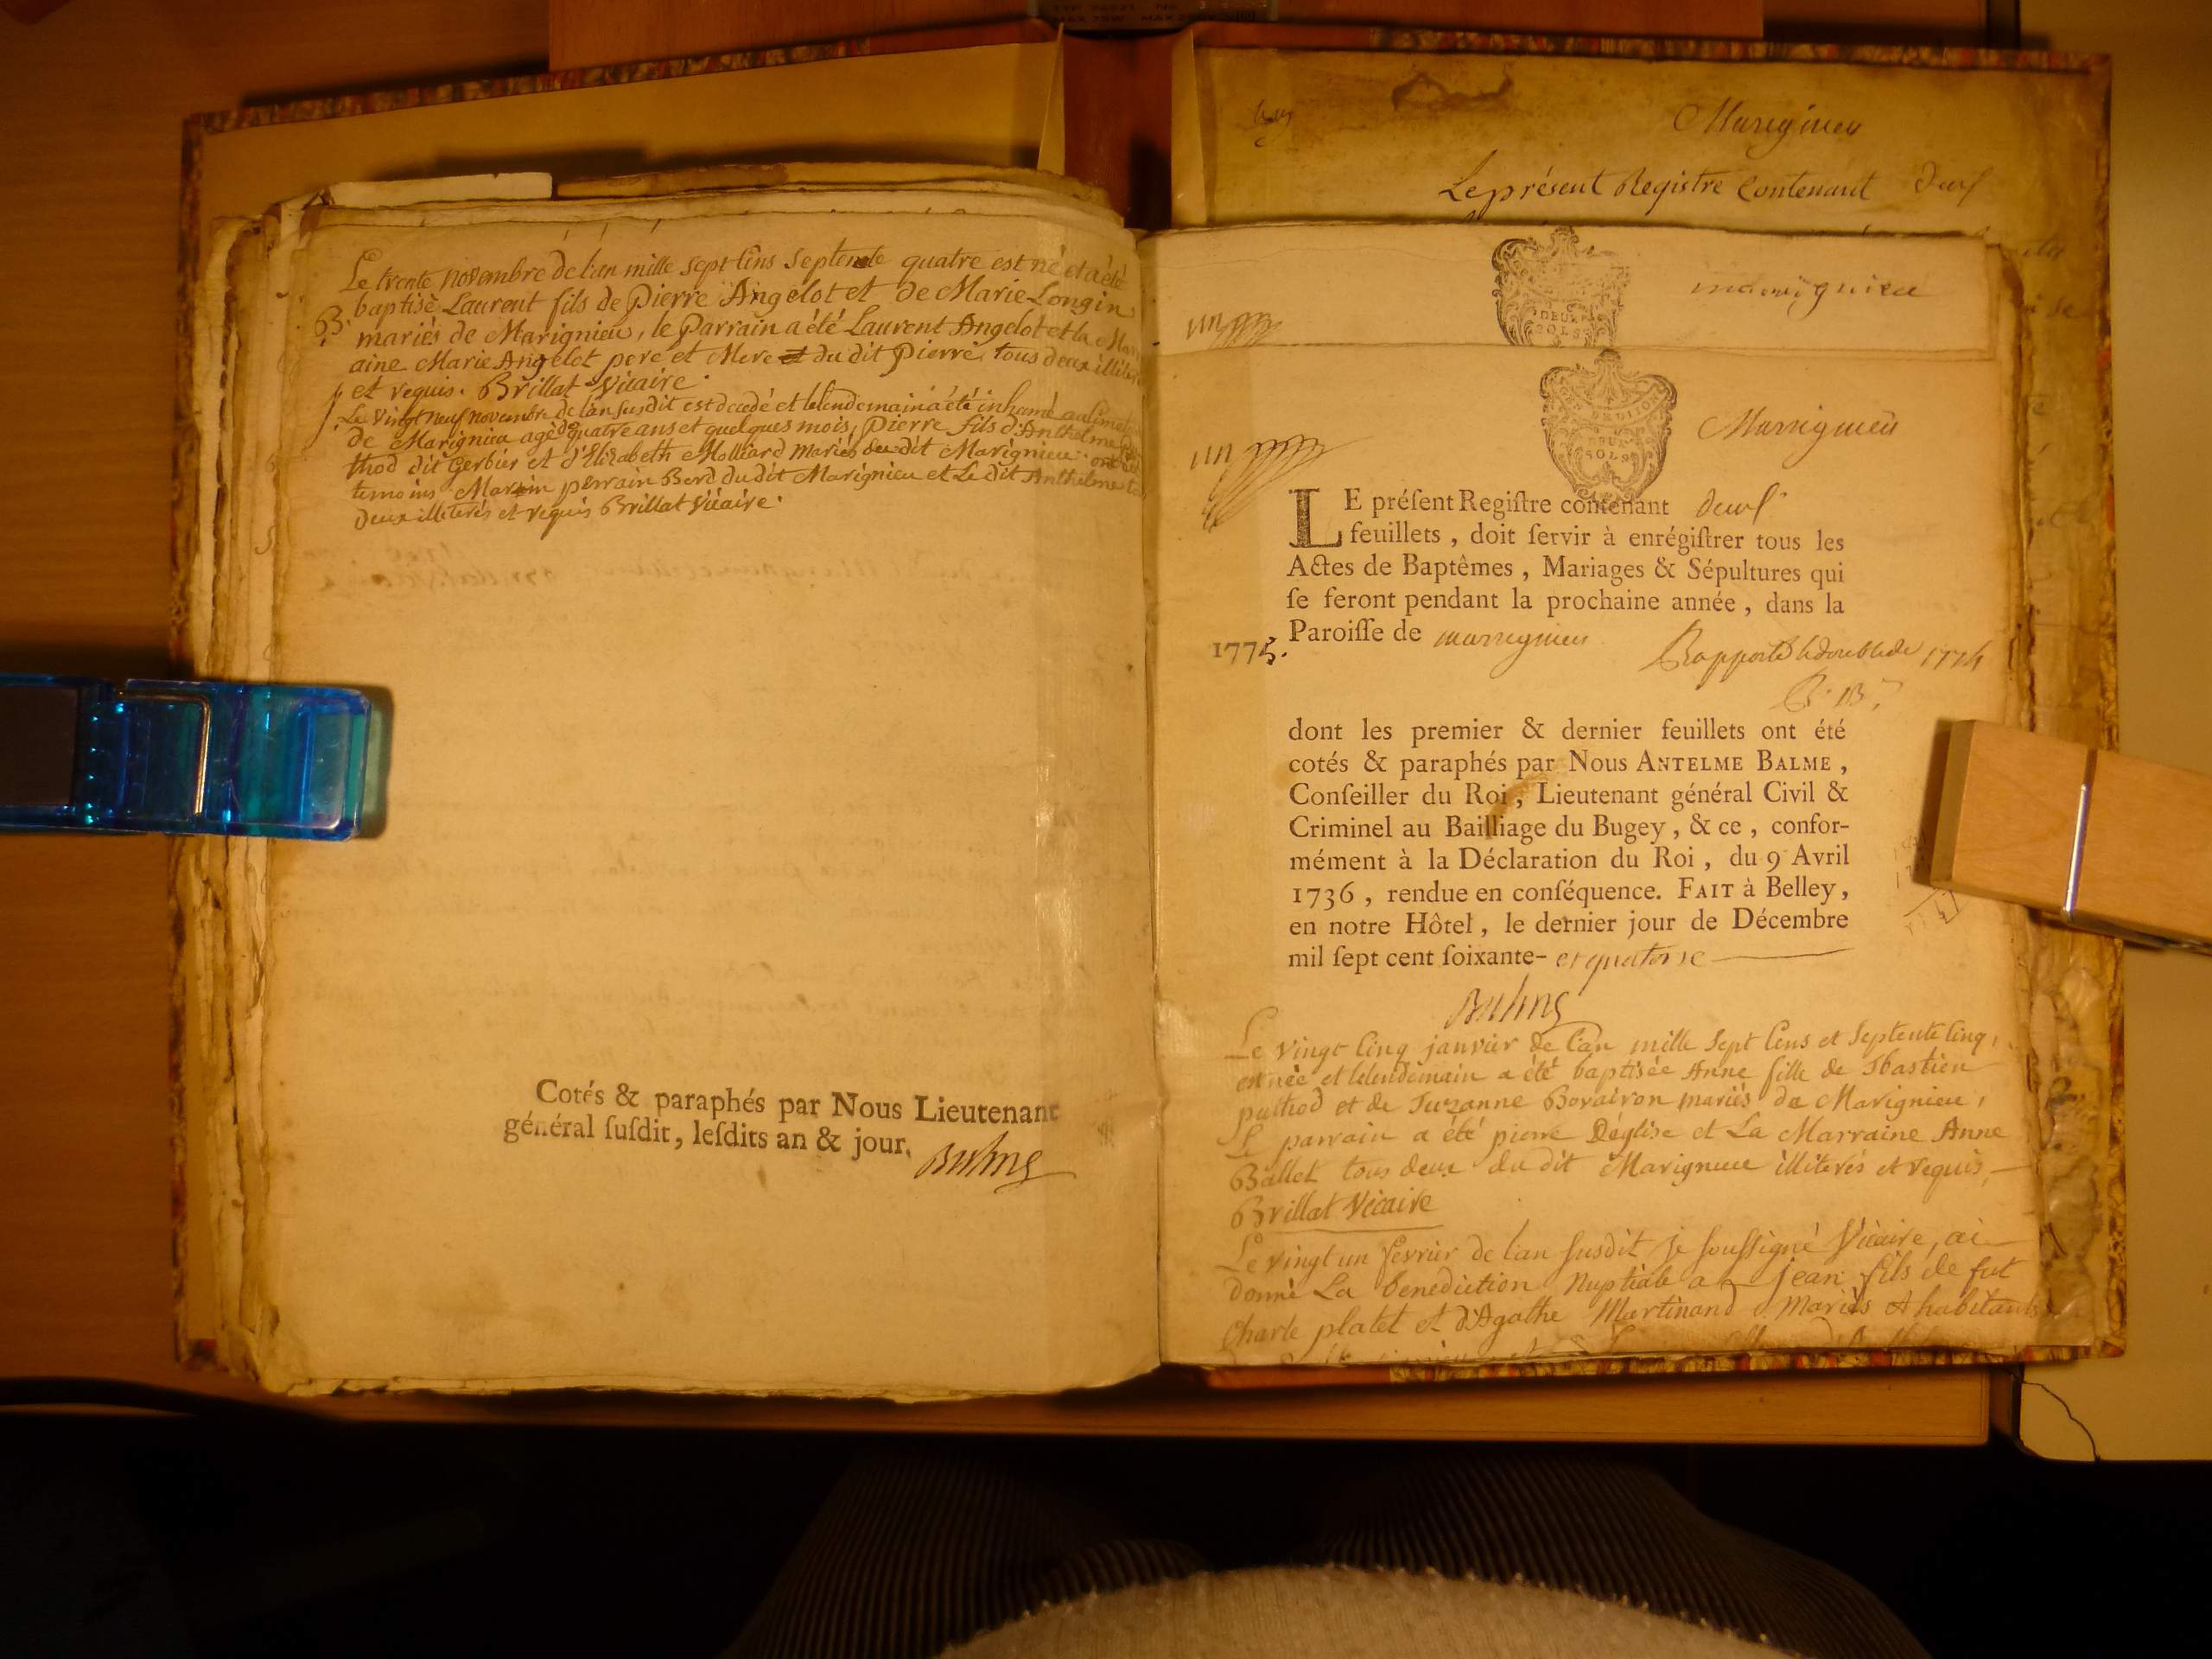 Le trente novembre de l'an mille sept Cens Septente quatre est né et a été
B. baptisé Laurent fils de Pierre Angelot et de Marie Longin
mariés de Marignieu, le Parrain a été Laurent Angelot et la Marr
aine Marie Angelot pere et Mere et du dit Pierre, tous deux illite
et requis. Brillat Vicaire.
Le vingt neuf novembre de l'an susdit est decedé et le lendemain a été inhumé au
de Marignieu agé de quatre ans et quelques mois, Pierre fils d'Anthelme
thod dit Gerbier et d'Elizabeth Molliard mariés du dit Marignieu. ont été
temoins Martin perrain Bord du dit Marignieu et Le dit Anthelme
deux illiterés et requis Brillat Vicaire.
Cotés & paraphés par Nous Lieutenant
général susdit, lesdits an & jour. Balme
Marignieu
Le présent Registre Contenant deux
DEUX
SOLS
marignieu
un
un
DEUX
SOLS
Marrignieu
LE préſent Regiſtre contenant deux
feuillets, doit ſervir à enrégiſtrer tous les
Actes de Baptêmes, Mariages & Sépultures qui
ſe feront pendant la prochaine année, dans la
1775. Paroiſſe de marrignieu
Rapporté le double de 1774
dont les premier & dernier feuillets ont été
cotés & paraphés par Nous ANTELME BALME,
Conſeiller du Roi, Lieutenant général Civil &
Criminel au Bailliage du Bugey, & ce, confor-
mément à la Déclaration du Roi, du 9 Avril
1736, rendue en conſéquence. FAIT à Belley,
en notre Hôtel, le dernier jour de Décembre
mil ſept cent ſoixante- et quatorze
Balme
Le vingt Cinq janvier de l'an mille Sept Cens et Septente Cinq,
est née et le lendemain a été baptisée Anne fille de Sbastien
puthod et de Suzanne Bovairon mariés de Marignieu,
Le parrain a été pierre Déglise et La Marraine Anne
Ballet tous deux du dit Marignieu illiterés et requis,
Brillat Vicaire
Le vingt un fevrier de l'an susdit je soussigné Vicaire, ai
donné La benediction Nuptiale a jean fils de fut
Charle platet et d'Agathe Martinand Mariés et habitants